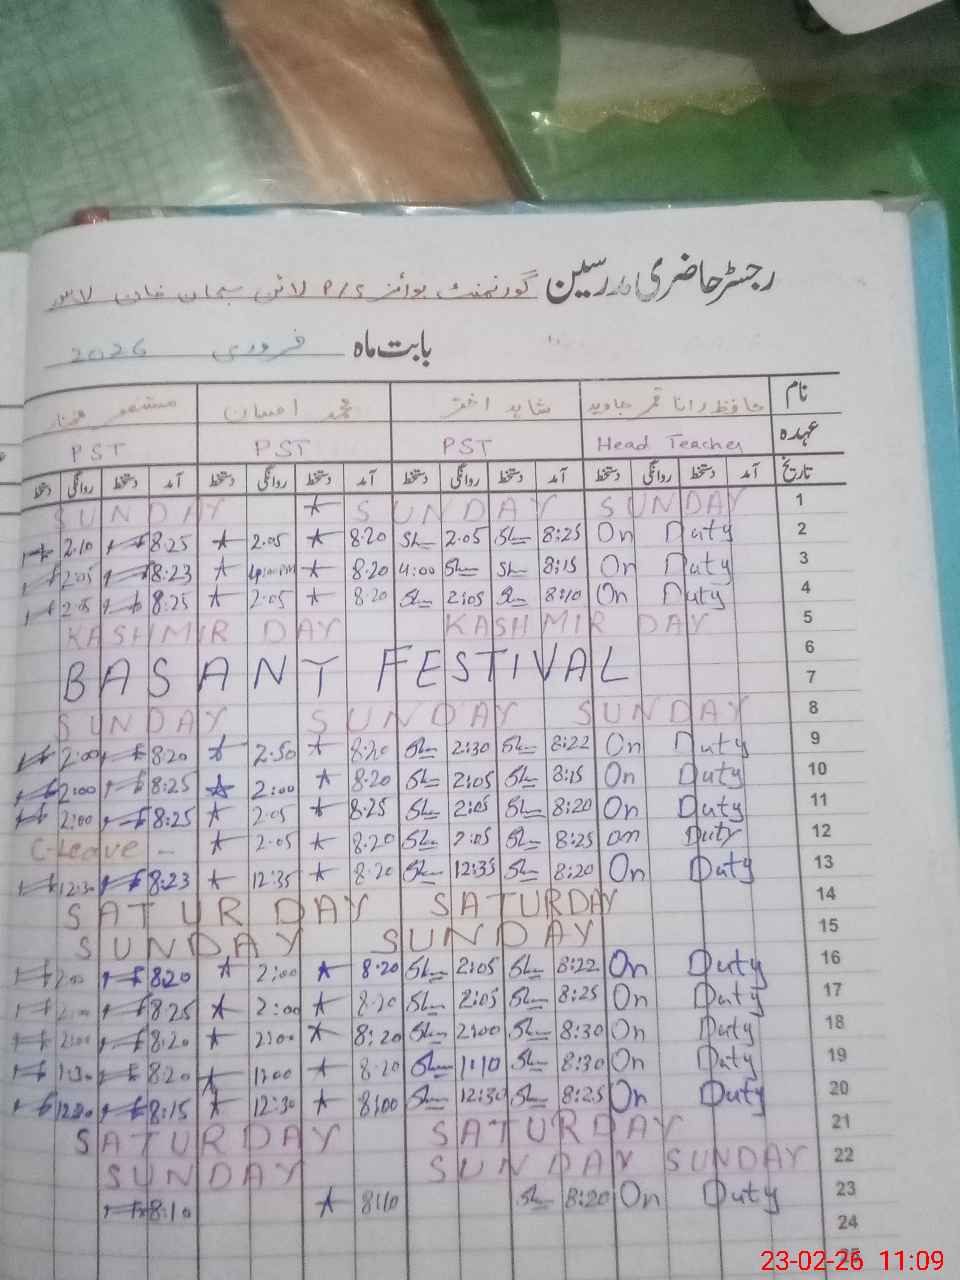 رجسٹر حاضری مدرسین گورنمنٹ بوائز P/S لائن سبحان خان
بابت ماہ فروری 2026
نام حافظ رانا قمر جاوید شاہد اختر محمد احسان
عہدہ Head Teacher PST PST PST
تاریخ آمد دستخط روانگی دستخط آمد دستخط روانگی دستخط آمد دستخط روانگی دستخط آمد دستخط روانگی دستخط
1 SUNDAY SUNDAY SUNDAY
2 On Duty 8:25 2.05 8.20 2.05 8.25 2.10
3 On Duty 8:15 4:00 8.20 8.23 2:05
4 On Duty 8:10 2:05 8.20 2.05 8.25 2.05
5 KASHMIR DAY KASHMIR DAY
6
7 BASANT FESTIVAL
8 SUNDAY SUNDAY SUNDAY
9 On Duty 8:22 2:30 8.20 2.50 8.20 2:00
10 On Duty 8:15 2:05 8.20 2:00 8.25 2:00
11 On Duty 8:20 2:05 8.25 2.05 8.25 2:00
12 On Duty 8:25 2:05 8.20 2.05 C-Leave -
13 On Duty 8:20 12:35 8.20 12:35 8.23 12:30
14 SATURDAY SATURDAY
15 SUNDAY SUNDAY
16 On Duty 8:22 2:05 8.20 2:00 8.20 2:00
17 On Duty 8:25 2:05 8.20 2:00 8.25 2:00
18 On Duty 8:30 2:00 8:20 2:00 8.20 2:00
19 On Duty 8:30 1:10 8.20 1:00 8.20 1:30
20 On Duty 8:25 12:30 8:00 12:30 8:15
21 SATURDAY SATURDAY
22 SUNDAY SUNDAY SUNDAY
23 On Duty 8:20 8:10 8:10
24
23-02-26 11:09